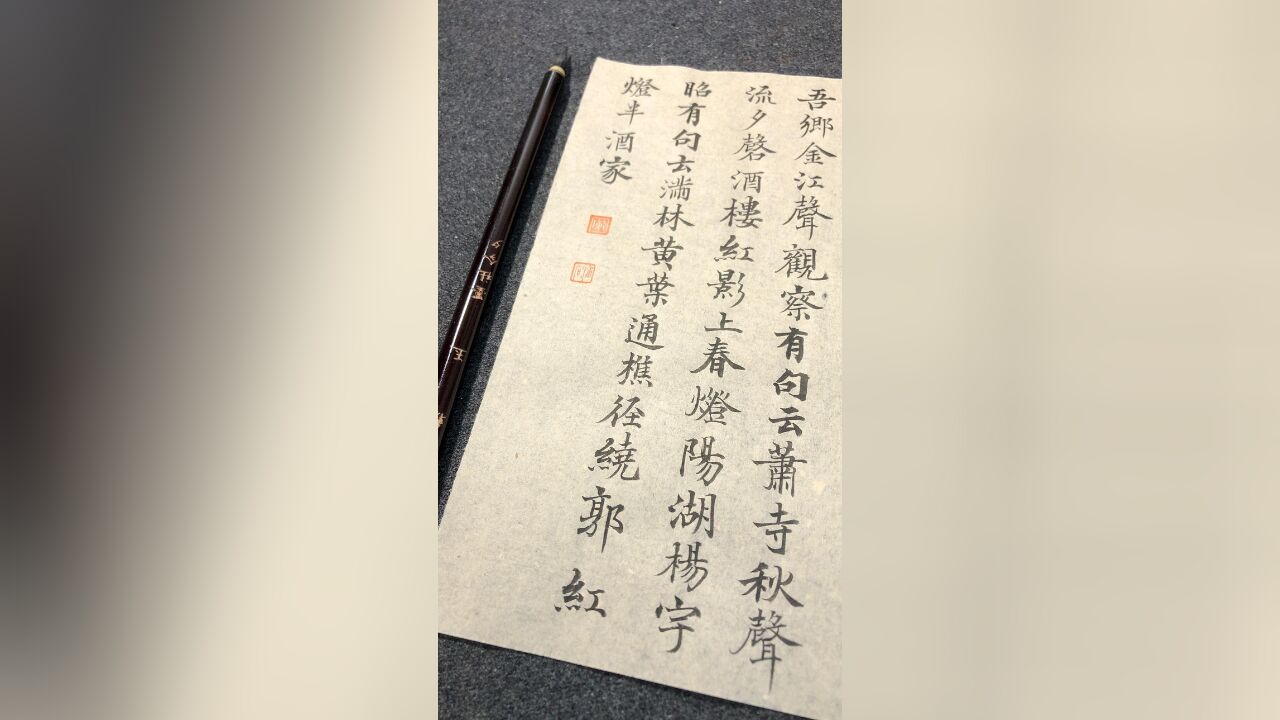 吾鄉金江聲觀察有句云蕭寺秋聲
流夕磬酒樓紅影上春燈陽湖楊宇
昭有句云滿林黃葉通樵径繞郭紅
燈半酒家